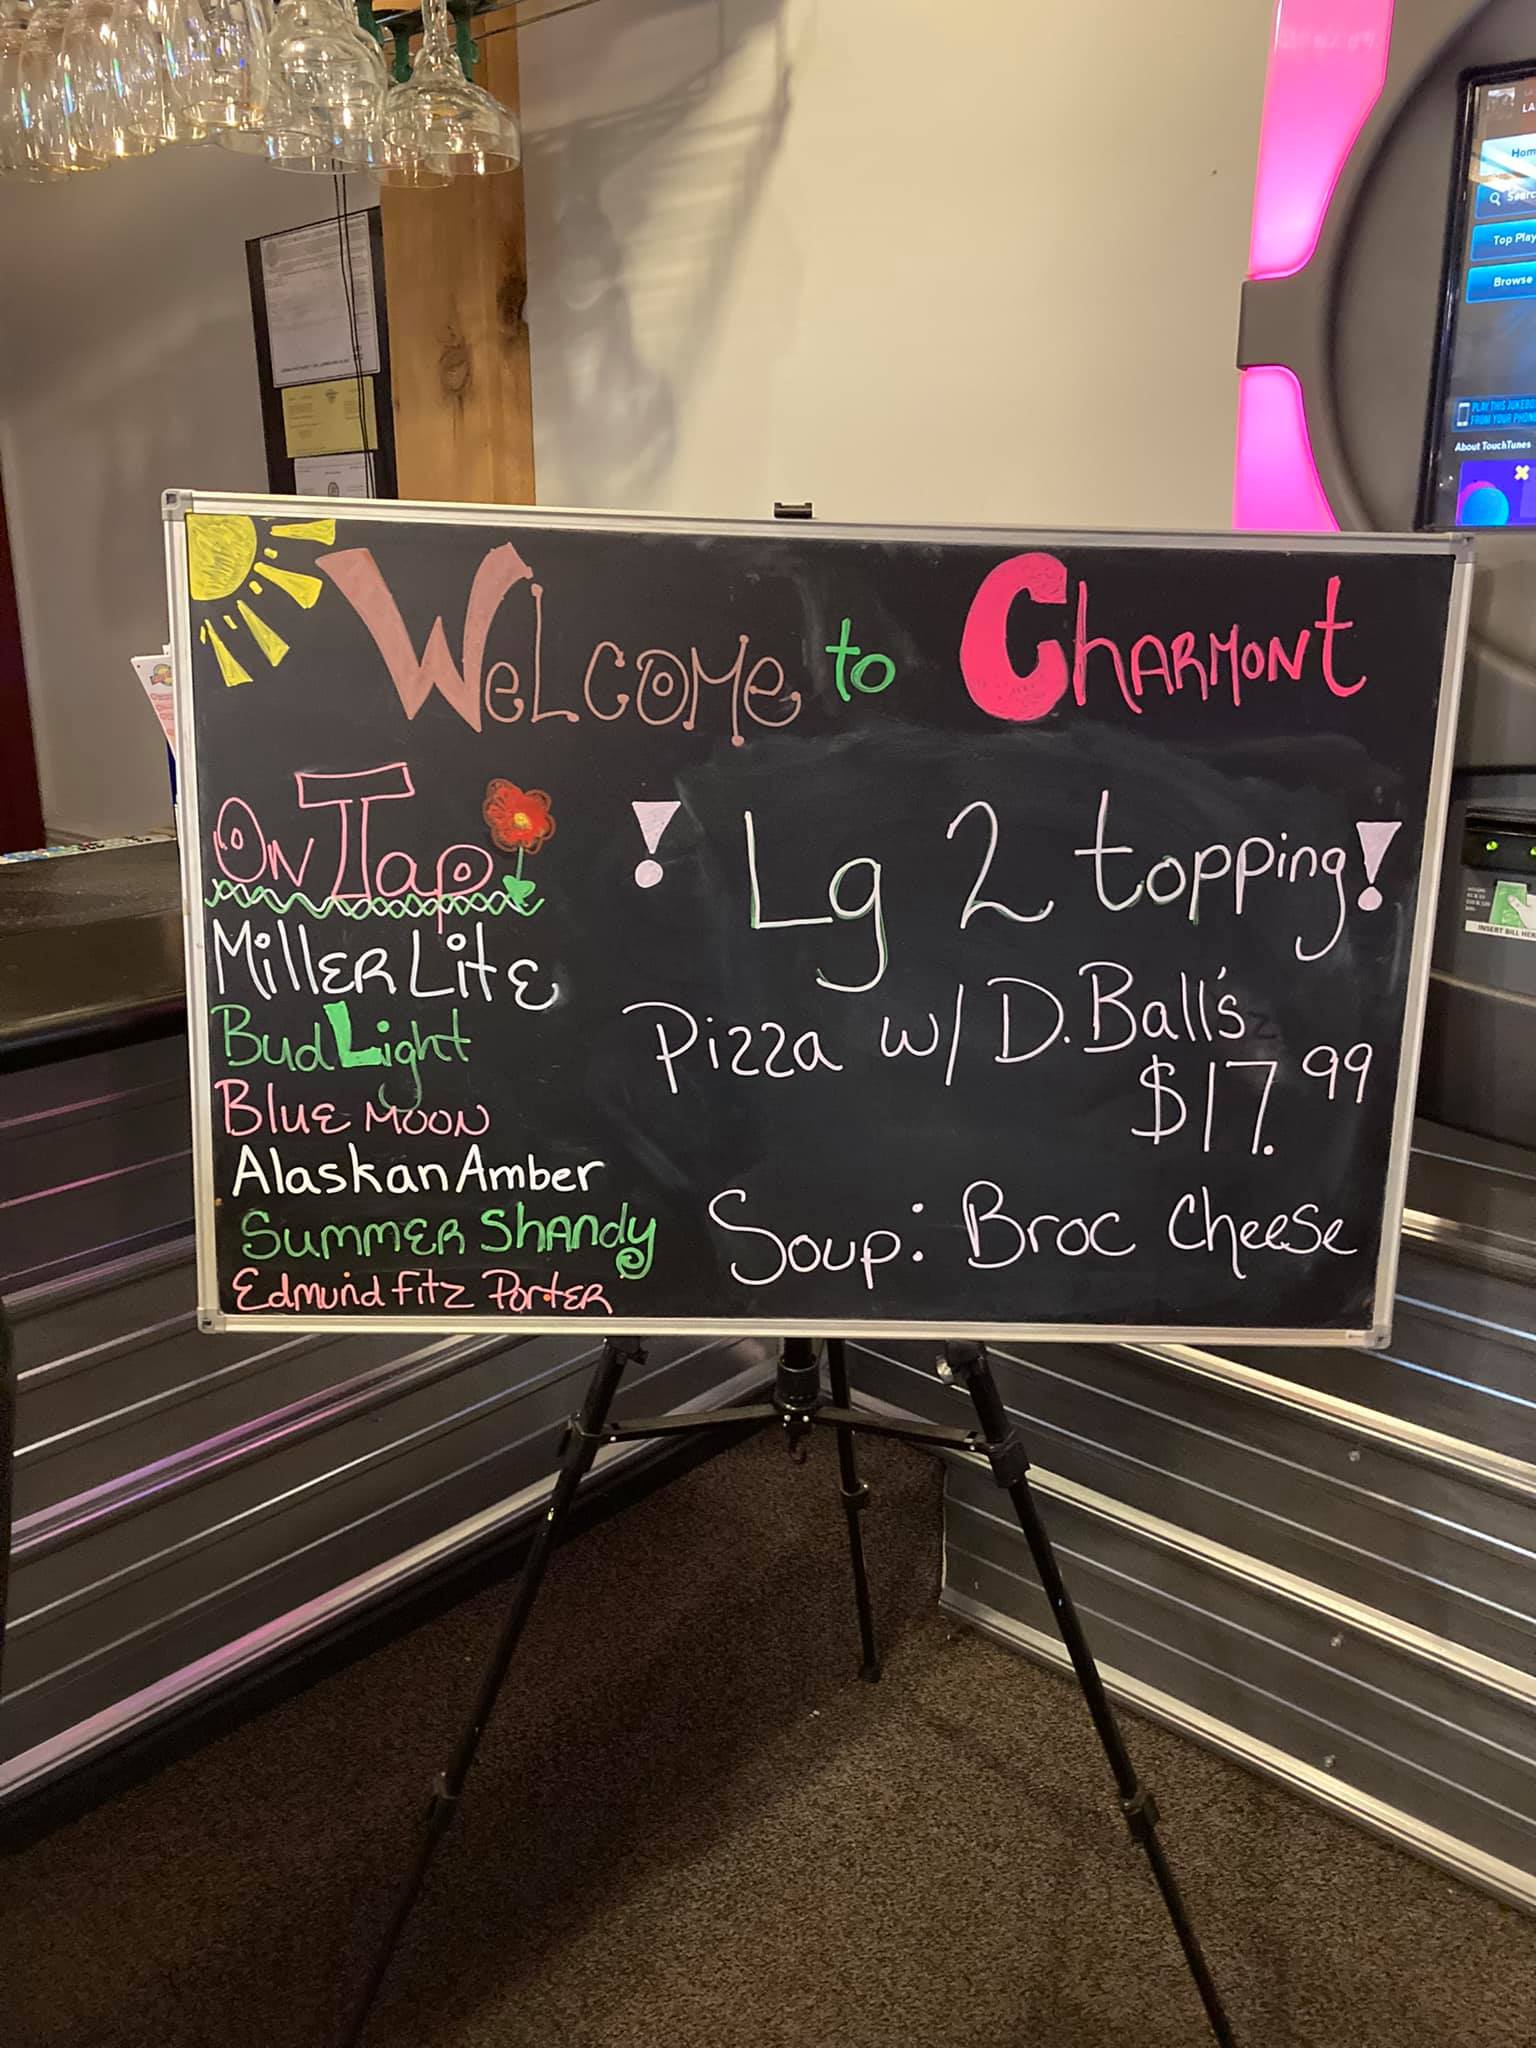 Welcome to Charmont
On Tap
Miller Lite
Bud Light
Blue Moon
Alaskan Amber
Summer Shandy
Edmund Fitz Porter
! Lg 2 topping!
Pizza w/ D. Ball's
$17.99
Soup: Broc Cheese
LA
Hom
Searc
Top Play
Browse
PLAY THIS JUKEBO
FROM YOUR PHONE
About TouchTunes
INSERT BILL HER